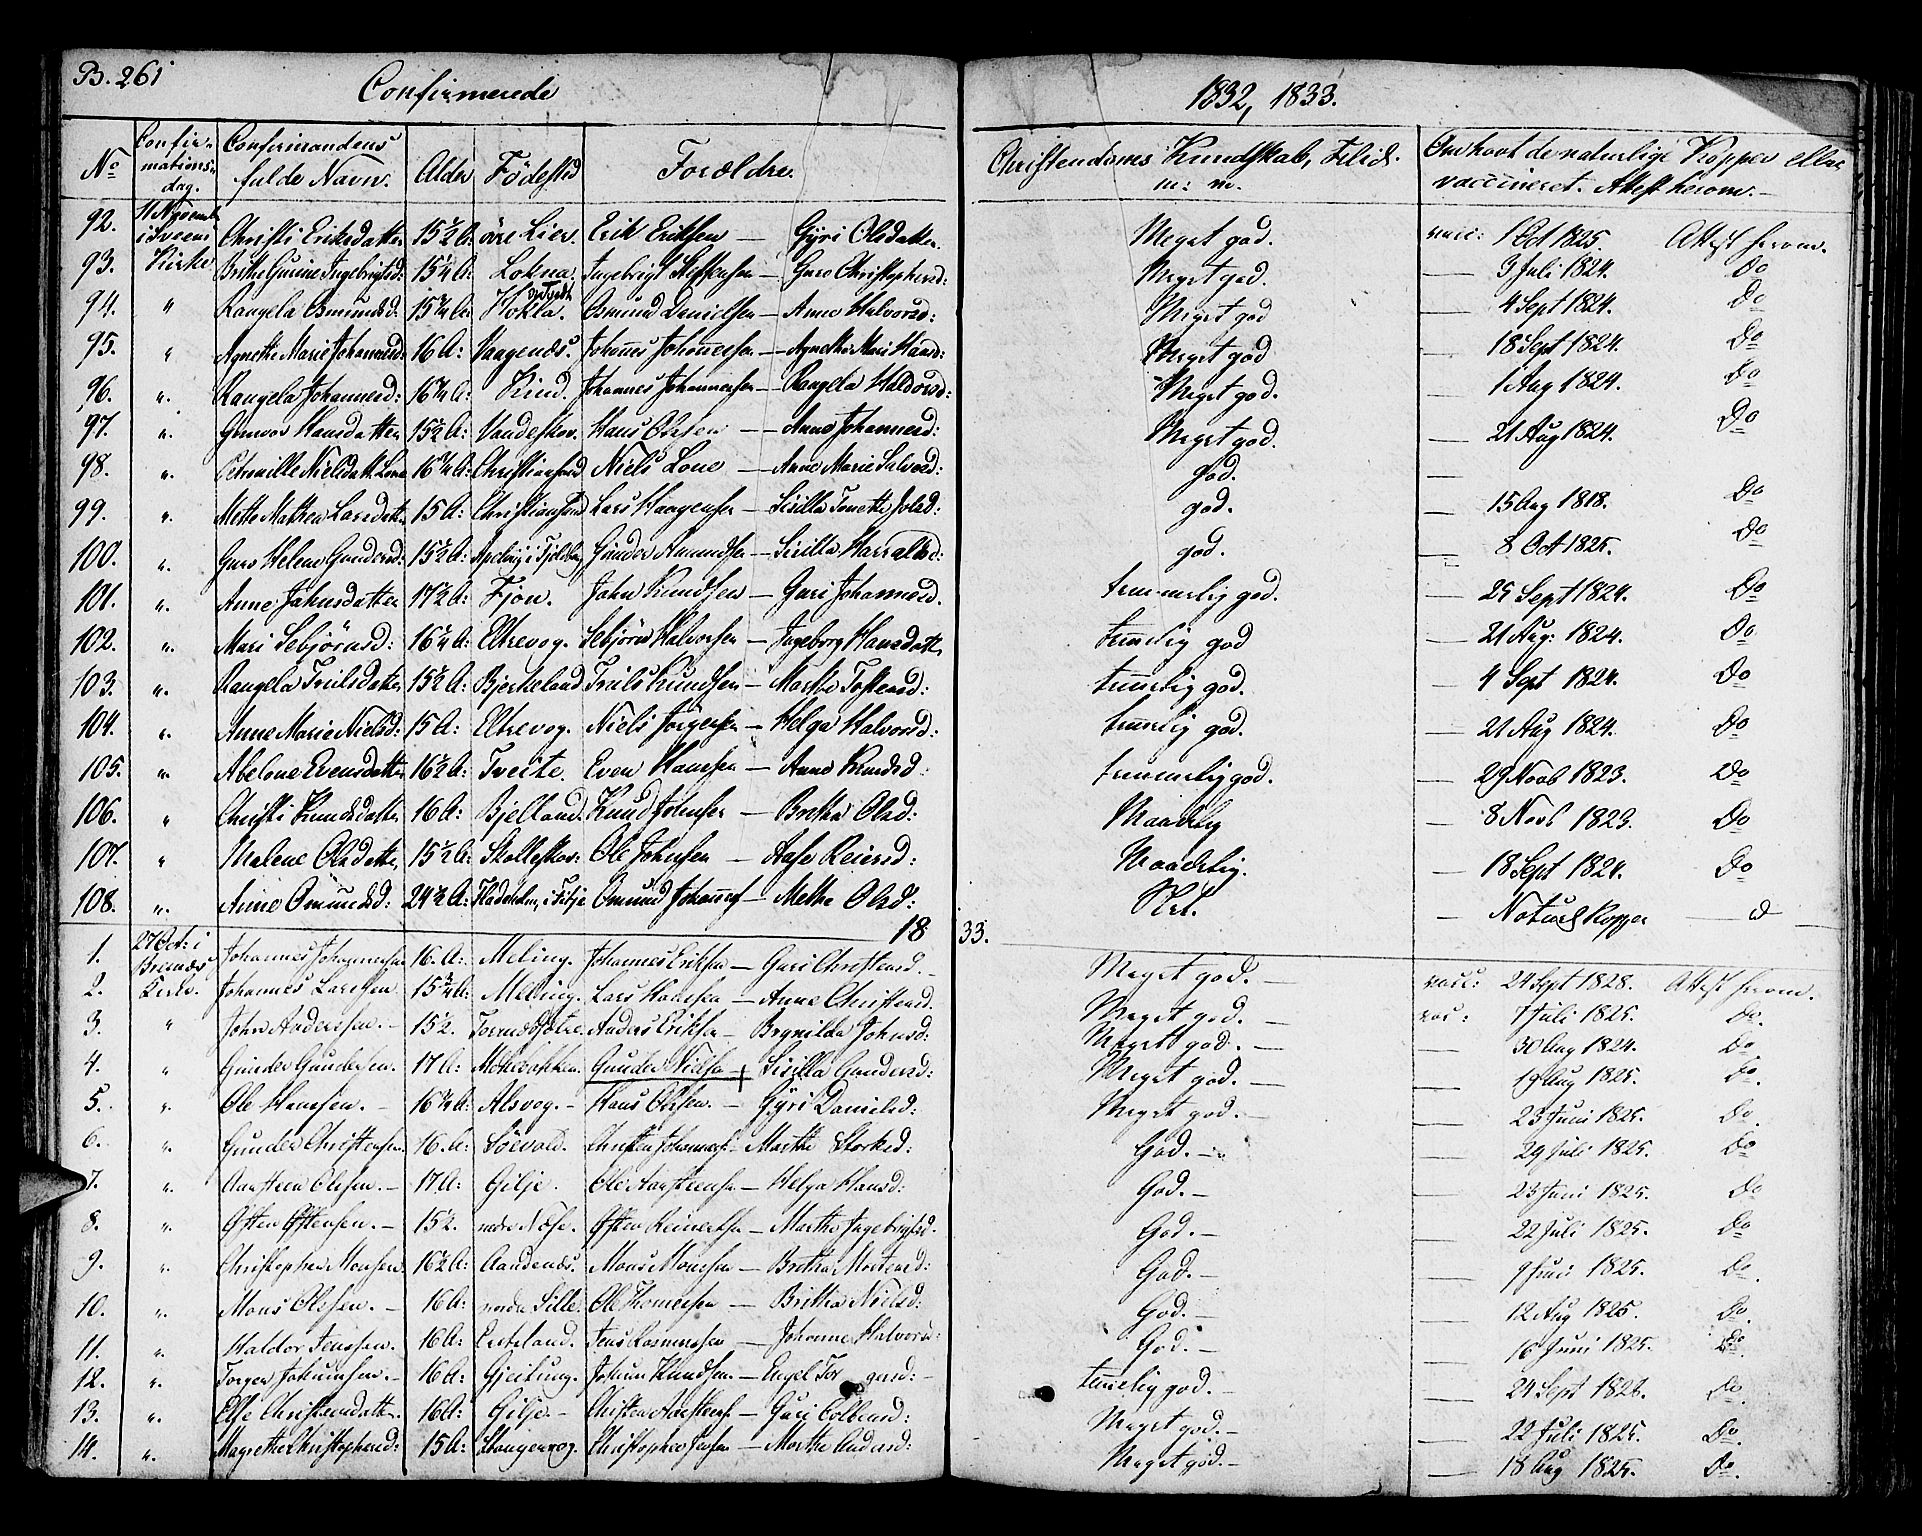 B. 261
Confirmerede
1832, 1833.
No
Confir-
mations-
dag.
Confirmandens
fulde Navn.
Alder
Fødested
Forældre.
Christendoms Kundskab, Flid.
m: m.
Om havt de naturlige Kopper eller
vaccineret. Attest herom.
92. i Sveens Christi Eriksdatter 15½ A: øvre Lier. Erik Eriksen — Gyri Olsdatter Meget god. vacc: 1 Oct 1825. Attest herom.
93. Kirke Brithe Gurine Ingebrigtsd: 15¼ A: Lokna. Ingebrigt Steffensen — Guro Christophersd: Meget god. — 3 Juli 1824. Do
94. " Rangela Osmundsd. A: Hokla. Osmund Danielsen — Anne Halvorsd: Meget god — 4 Sept 1824. Do
95. " Agnethe Marie Johannesd: 16 A: Vaagenæs. Johannes Johannessen — Agnethe Marie Hansd: Meget god — 18 Sept 1824. Do
96. " Rangela Johannesd: A: Kind. Johannes Johannessen — Rangela Haldorsd: Meget god. — 1 Aug 1824. Do
97. " Gunvor Hansdatter 15½ A: Vandeskov. Hans Olsen — Anne Johannesd: Meget god. — 21 Aug 1824. Do
98. " Petronille Nielsdatt. Lone A: Christiansund Niels Lone — Anne Marie god. —
99. " Mette Mathea Larsdatter 15 A: Christiansund Lars Haagensen — Sisilla god. — 15 Aug 1818. Do
100. " Guro Helene Gundersd: 15½ A: Gunder Amundsen — Sisilla Harralsd: god. — 8 Oct 1825. Do
101. " Anne Johnsdatter 17½ A: Fjon. John Knudsen — Guri Johannesd. temmelig god. — 25 Sept 1824. Do
102. " Mari Sebjörnsd: A: Eltrevog. Sebjörn Halvorsen — Ingeborg Hansdatt. temelig god — 21 Aug: 1824. Do
103. " Rangela Troilsdatter 15½ A: Bjerkeland Troils Knudsen — Marthe Toftensd: temelig god. — 4 Sept 1824. Do
104. " Anne Marie Nielsd: 15 A: Eltrevog. Niels Jörgensen — Helga Halvorsd: temelig god. — 21 Aug 1824. Do
105. " Abelone Evensdatter 16½ A: Tveite. Even Hansen — Anne Knudsd: temmelig god. — 29 Novb 1823. Do
106. " Christi Knudsdatter 16 A: Bjelland. Knud Johnsen — Brithe Olsd: Maadelig — 8 Novb 1823. Do
107. " Malene Olsdatter 15½ A: Ole Johnsen — Aase Reiersd: Maadelig. — 18 Sept 1824. Do
108. " Anne Omundsd: A: Omund — Methe Olsd: Slet. — Naturl Kopper
1833.
1. 27 Oct: i Johannes Johannessen 16. A: Meling. Johannes Eriksen — Guri Christensd. Meget god. — vacc: 24 Sept 1828. Attest herom.
2. Kirke. Johannes Larssen A: Meling. Lars Hansen — Anne Christensd. Meget god. — vac: 7 Juli 1825. Do.
3. " John Anderssen. — 15½. Anders Eriksen — Brynilda Johnsd: Meget god. — 30 Aug 1824. Do
4. " Gunder Gundersen. 17 A: Gunder Nielsen — Sisilla Gundersd: Meget god. — 19 Aug 1825. Do.
5. " Ole Hanssen. — A: Alsvog. — Hans Olsen. — Gyri Danielsd: Meget god. — 23 Juni 1825. Do
6. " Gunder Christensen. 16. A: Söevold. Christen Johannesen — Marthe Storksd: God. — 29 Juli 1825. Do
7. " Aansteen Olesen. — 17 A: Gilje. Ole Aansteensen — Helga Hansd: God. — 23 Juni 1825. Do
8. " Østen Østensen. — 15½. nedre Næse. Østen Reinertsen — Marthe Ingebrigtsd. God. — 22 Juli 1825. Do
9. " Christopher Monsen. 16½ A: Aandenæs. Mons Monsen — Brithe Mortensd: God. — 9 Juni 1825. Do.
10. " Mons Olesen. — 16 A: nedre Sille. Ole — Britha Nielsd: God. — 12 Aug 1825. Do.
11. " Haldor Jenssen. 16 A: Jens Rasmussen — Johanne Halvorsd: God. — 16 Juni 1825. Do
12. " Torger Johannsen. — 16 A: Gjeitung. Johann Knudsen. — Engel temelig god. — 24 Sept 1828. Do
13. " Else Christensdatter. 16 A: Gilje. — Christen Aansteensen — Guri Colbensd: Meget god. — 22 Juli 1825. Do.
14. " Magrethe Christophersd: 15 A: Stangevog. Christopher Jensen — Marthe Andersd: Meget god. — 18 Aug 1825. Do.